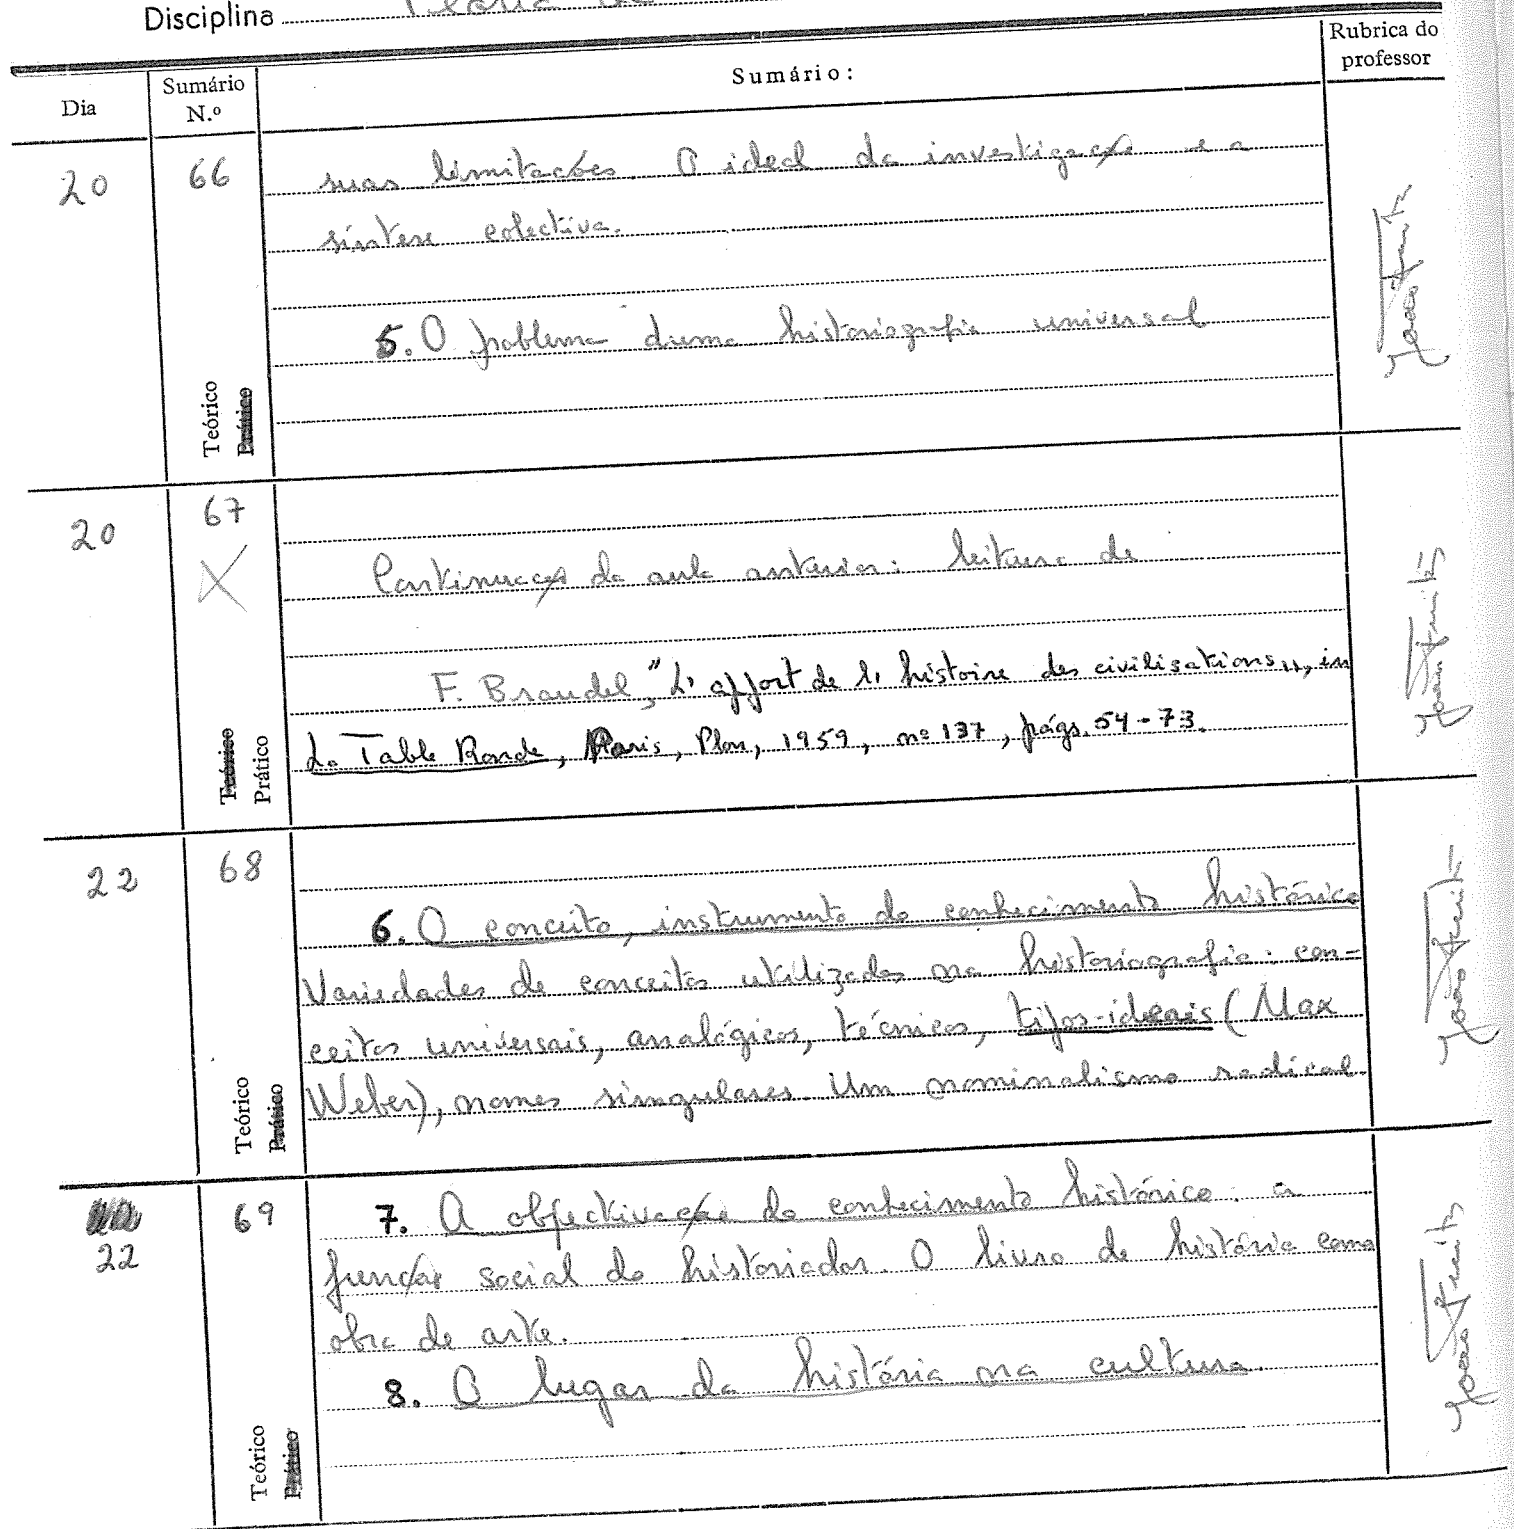 Disciplina Teoria da
Dia
Sumário
N.º
Sumário:
Rubrica do
professor
20
66
suas limitações. O ideal da investigação e a
síntese colectiva.
5. O problema duma historiografia universal
Teórico
Prático
20
67
Continuação da aula anterior: leitura de
F. Braudel, "L'apport de l'histoire des civilisations", in
La Table Ronde, Paris, Plon, 1959, nº 137, págs. 54-73.
Teórico
Prático
22
68
6. O conceito, instrumento do conhecimento histórico
Variedades de conceitos utilizados na historiografia: con-
ceitos universais, analógicos, técnicos, tipos-ideais (Max
Weber), nomes singulares. Um nominalismo radical.
Teórico
Prático
22
69
7. A objectivação do conhecimento histórico: a
função social do historiador. O livro de história como
obra de arte.
8. O lugar da história na cultura.
Teórico
Prático